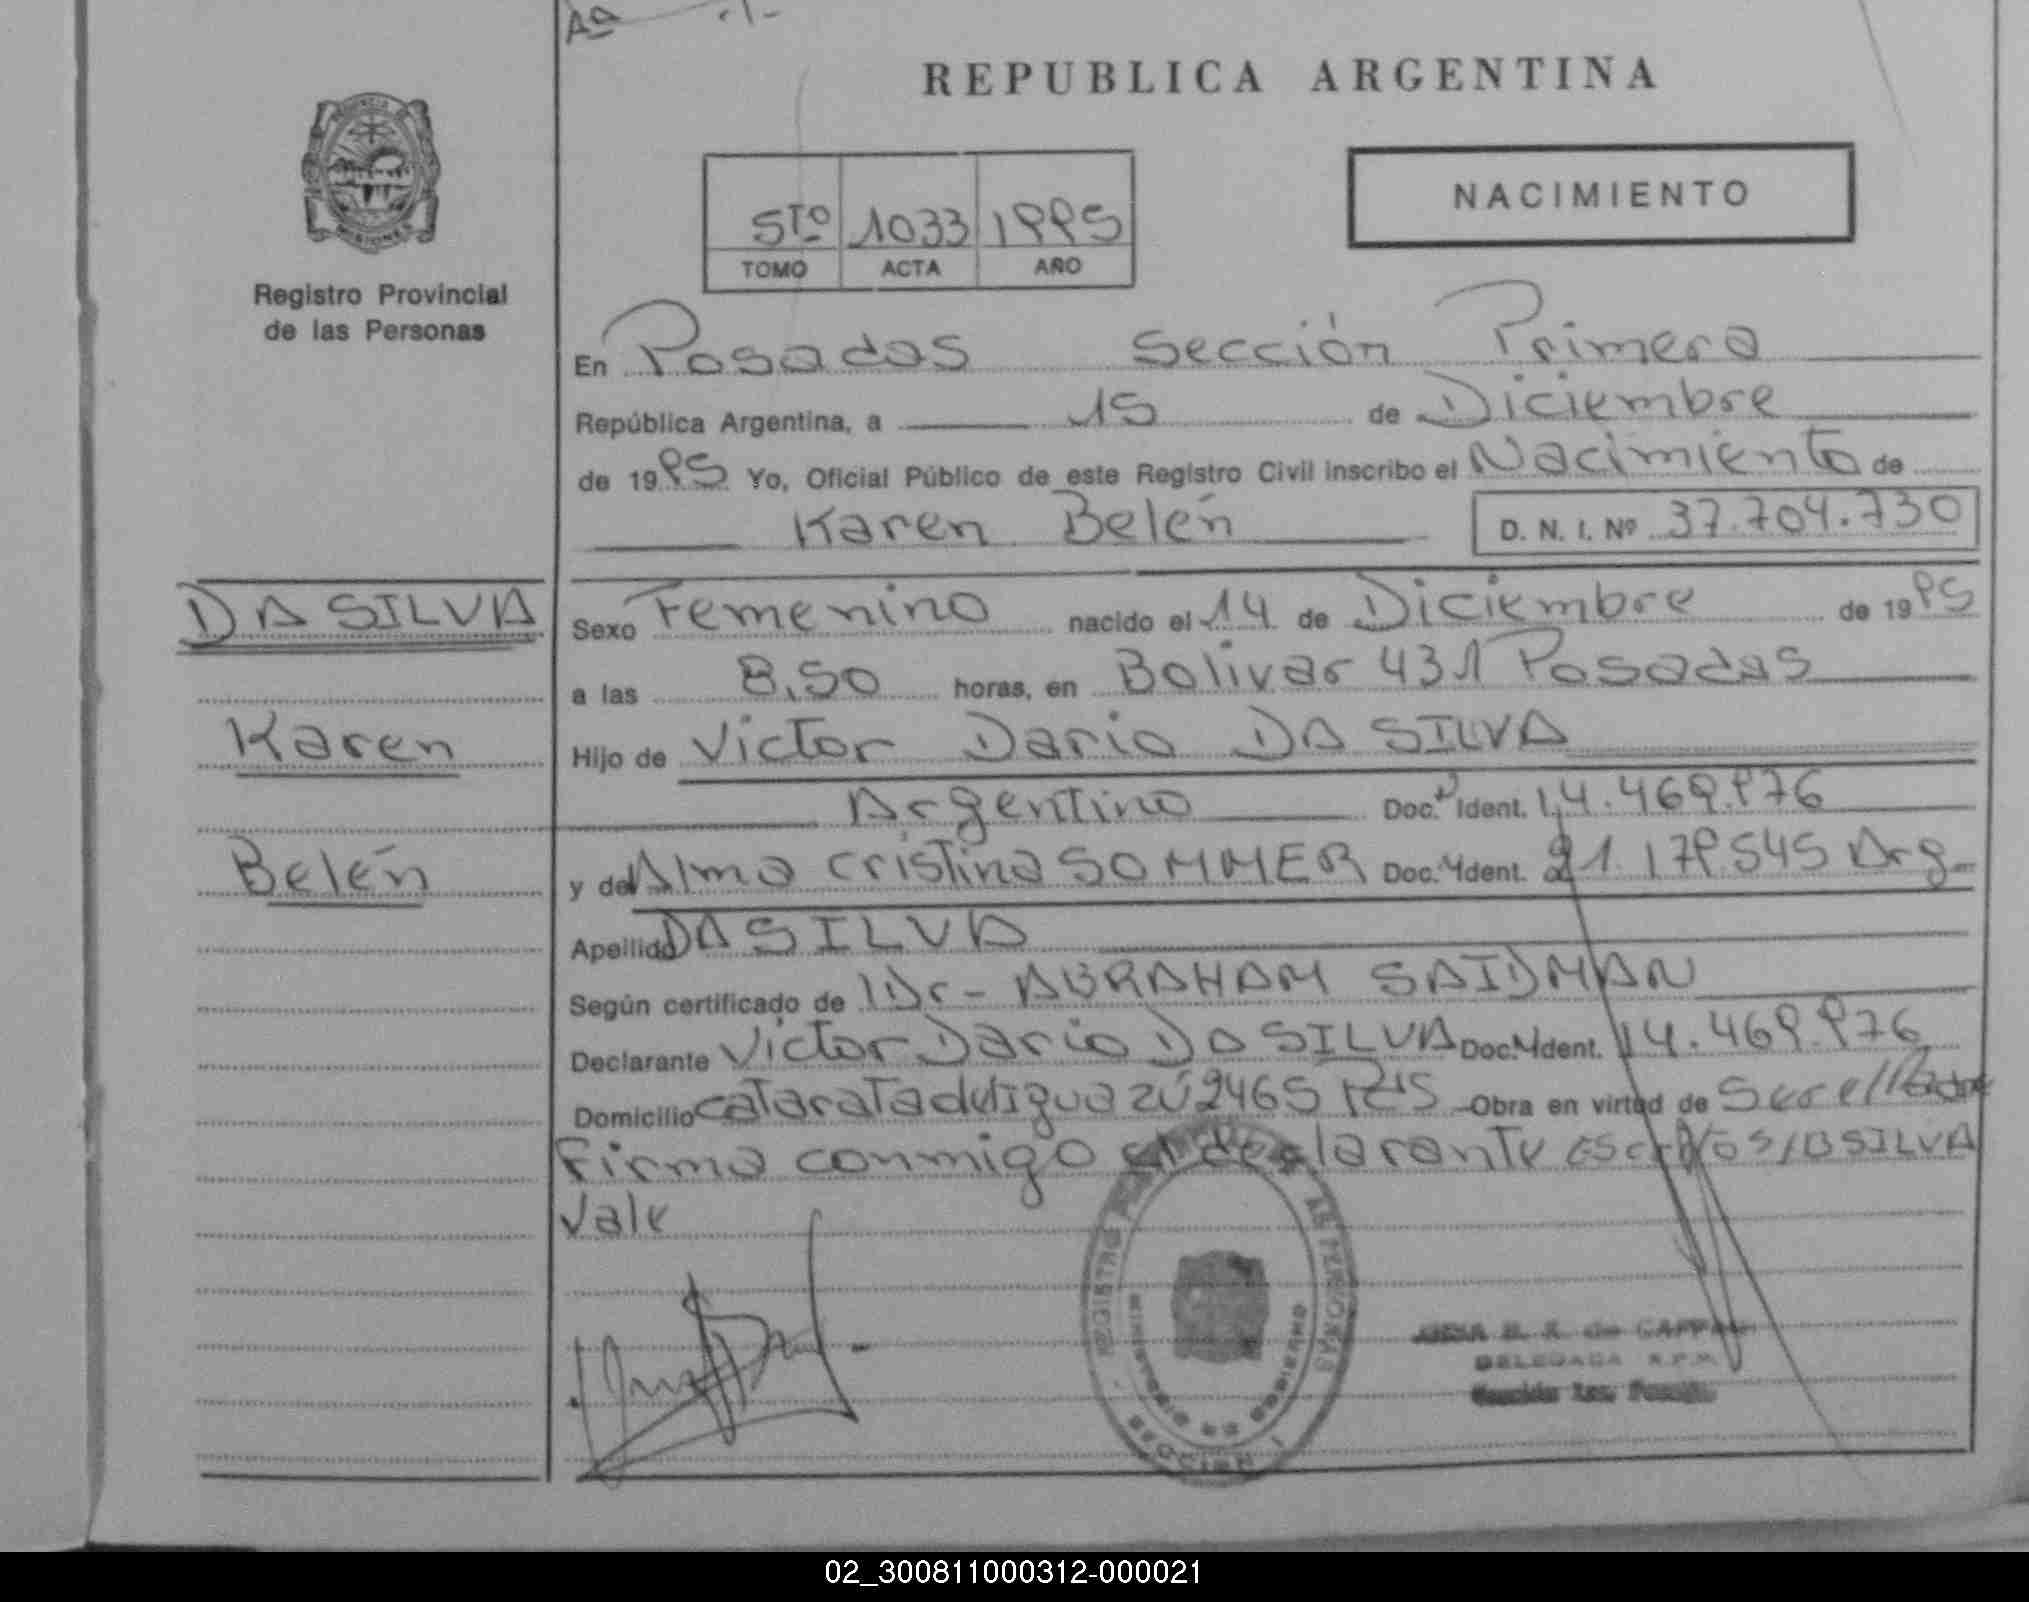 REPUBLICA ARGENTINA
NACIMIENTO
5to 1033 1995
TOMO ACTA AÑO
MISIONES
Registro Provincial
de las Personas
En Posadas Sección Primera
República Argentina, a 15 de Diciembre
de 1995 Yo, Oficial Público de este Registro Civil inscribo el Nacimiento de
Karen Belén D. N. I. Nº 37.704.730
DA SILVA
Karen
Belén
Sexo Femenino nacido el 14 de Diciembre de 1995
a las 8,50 horas, en Bolivar 431 Posadas
Hijo de Victor Dario DA SILVA
Argentino Doc. Ident. 14.469.976
y de Alma Cristina SOMMER Doc. Ident. 21.179.545 Arg.
Apellido DA SILVA
Según certificado de Dr. ABRAHAM SAIDMAN
Declarante Victor Dario DA SILVA Doc. Ident. 14.469.976
Domicilio 2465 Obra en virtud de
Firma conmigo el declarante DA SILVA
Vale
REGISTRO PERSONAS
MINISTERIO DE GOBIERNO
SECCION 1
DELEGADA R.P.M.
02_300811000312-000021